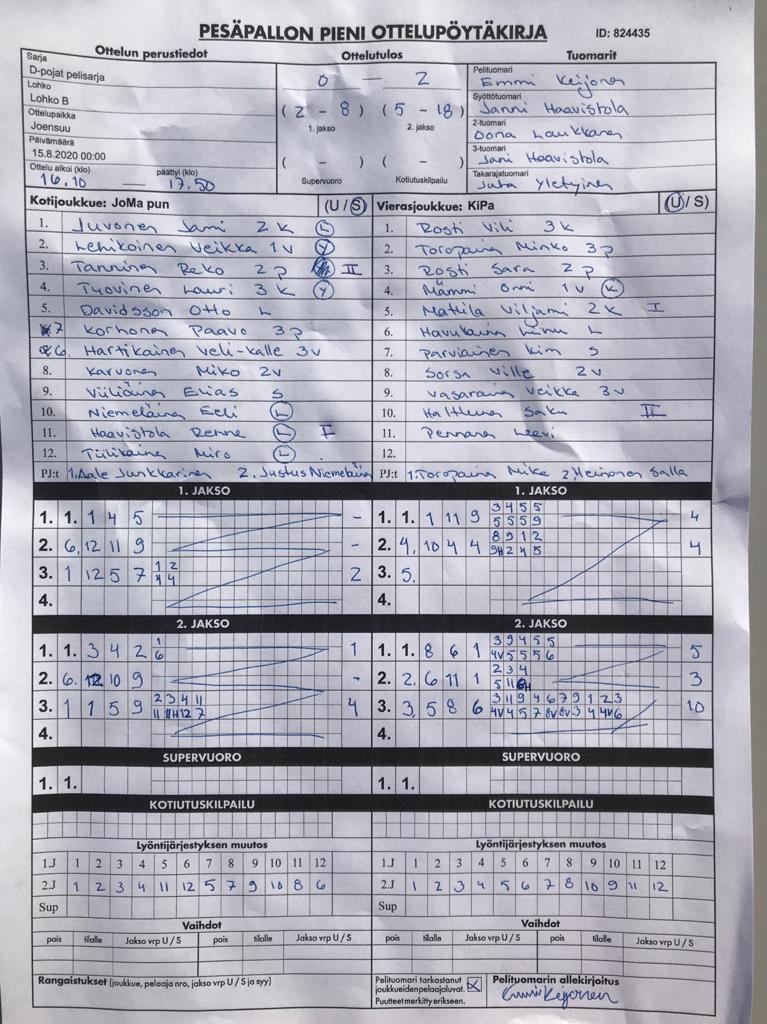 PESÄPALLON PIENI OTTELUPÖYTÄKIRJA ID: 824435
Ottelun perustiedot
Sarja
D-pojat pelisarja
Lohko
Lohko B
Ottelupaikka
Joensuu
Päivämäärä
15.8.2020 00:00
Ottelu alkoi (klo) päättyi (klo)
16.10 — 17.50
Ottelutulos
0 — 2
(2 - 8) (5 - 18)
1. jakso 2. jakso
( - ) ( - )
Supervuoro Kotiutuskilpailu
Tuomarit
Pelituomari
Emmi Keijonen
Syöttötuomari
Janni Haavistola
2-tuomari
Oona Laukkanen
3-tuomari
Jani Haavistola
Takarajatuomari
Juha Yletyinen
Kotijoukkue: JoMa pun (U / S)
1. Juvonen Jami 2 k L
2. Lehikoinen Veikka 1 v Y
3. Tanninen Reko 2 p II
4. Tuovinen Lauri 3 k Y
5. Davidsson Otto L
7 Korhonen Paavo 3 p
6. Hartikainen Veli-Kalle 3v
8. Karvonen Miko 2v
9. Elias S
10. Niemeläinen Eeli L
11. Haavistola Renne L I
12. Tiilikainen Miro L
PJ:t 1. Aale Junkkarinen 2. Justus Niemeläinen
Vierasjoukkue: KiPa (U / S)
1. Rosti Vili 3 k
2. Toropainen Minko 3 p
3. Rosti Sara 2 p
4. Mämmi Onni 1 v K
5. Mattila Viljami 2 k I
6. Havukainen L
7. Parviainen Kim S
8. Sorsa Ville 2 v
9. Vasarainen Veikka 3 v
10. Halttunen Saku II
11. Pennanen Leevi
12.
PJ:t 1. Toropainen Mika 2. Heinonen Salla
1. JAKSO
1. 1. 1 4 5 -
2. 6, 12 11 9 -
3. 1 12 5 7 1 2 4 4 2
4.
1. JAKSO
1. 1. 1 11 9 3 4 5 5 4
5 5 5 9
2. 4, 10 4 4 8 9 1 2 4
9H 2 4 5
3. 5.
4.
2. JAKSO
1. 1. 3 4 2 1 6 1
2. 6. 12 10 9 -
3. 1 1 5 9 2 3 4 11 4
11 11H 12 7
4.
2. JAKSO
1. 1. 8 6 1 3 9 4 5 5 5
4V 5 5 5 6
2. 2. 6 11 1 2 3 4 3
5 11 6H
3. 3, 5 8 6 3 11 9 4 6 7 9 1 2 3 10
4V 4 5 7 8V 8V 3 4 4V 6
4.
SUPERVUORO SUPERVUORO
1. 1. 1. 1.
KOTIUTUSKILPAILU KOTIUTUSKILPAILU
Lyöntijärjestyksen muutos
1.J 1 2 3 4 5 6 7 8 9 10 11 12
2.J 1 2 3 4 11 12 5 7 9 10 8 6
Sup
Lyöntijärjestyksen muutos
1.J 1 2 3 4 5 6 7 8 9 10 11 12
2.J 1 2 3 4 5 6 7 8 10 9 11 12
Sup
Vaihdot Vaihdot
pois tilalle Jakso vrp U / S pois tilalle Jakso vrp U / S pois tilalle Jakso vrp U / S pois tilalle Jakso vrp U / S
Rangaistukset (joukkue, pelaaja nro, jakso vrp U / S ja syy)
Pelituomari tarkastanut
joukkueiden pelaajaluvat.
Puutteet merkitty erikseen.
Pelituomarin allekirjoitus
Emmi Keijonen